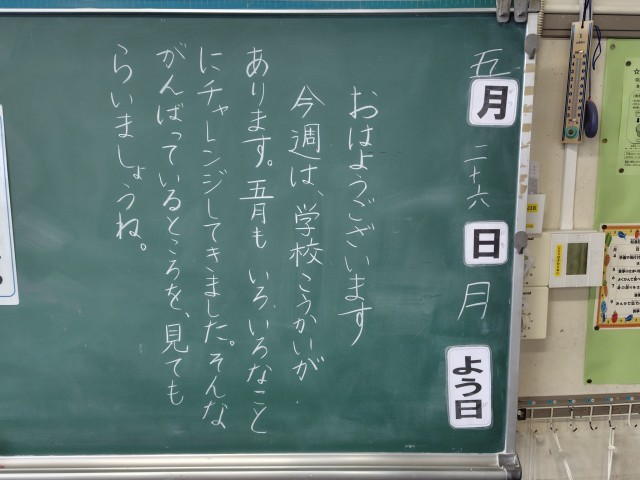 五月二十六日月よう日
おはようございます
今週は、学校こうかいが
あります。五月もいろいろなこと
にチャレンジしてきました。そんな
がんばっているところを、見ても
らいましょうね。